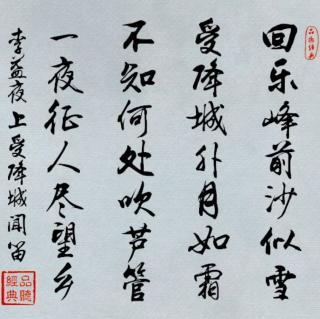 回乐峰前沙似雪
受降城外月如霜
不知何处吹芦管
一夜征人尽望乡
李益夜上受降城闻笛
品聽
經典